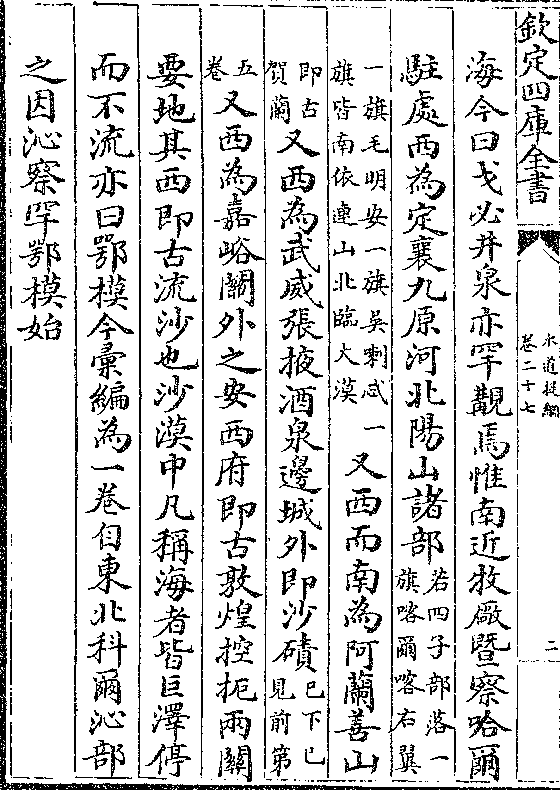 欽定四庫全書
水道提綱
卷二十七
二
海今曰戈必井泉亦罕覯焉惟南近牧廠暨察哈爾
駐處西為定襄九原河北陽山諸部
若四子部落一
旗喀爾喀右翼
一旗毛明安一旗吳剌忒一
旗皆南依連山北臨大漠
又西而南為阿蘭善山
即古
賀蘭
又西為武威張掖酒泉邊城外即沙磧
已下已
見前第
五
卷
又西為嘉峪關外之安西府即古敦煌控扼兩關
要地其西即古流沙也沙漠中凡稱海者皆巨澤停
而不流亦曰鄂模今彙編為一卷自東北科爾沁部
之因沁察罕鄂模始